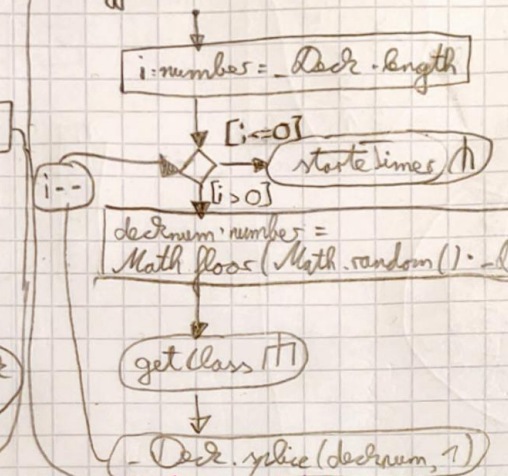 i:number = _Deck.length
[i<=0]
starteTimer
i--
[i>0]
decknum:number =
Math.floor(Math.random()·_
getClass
_Deck.splice(decknum, 1)